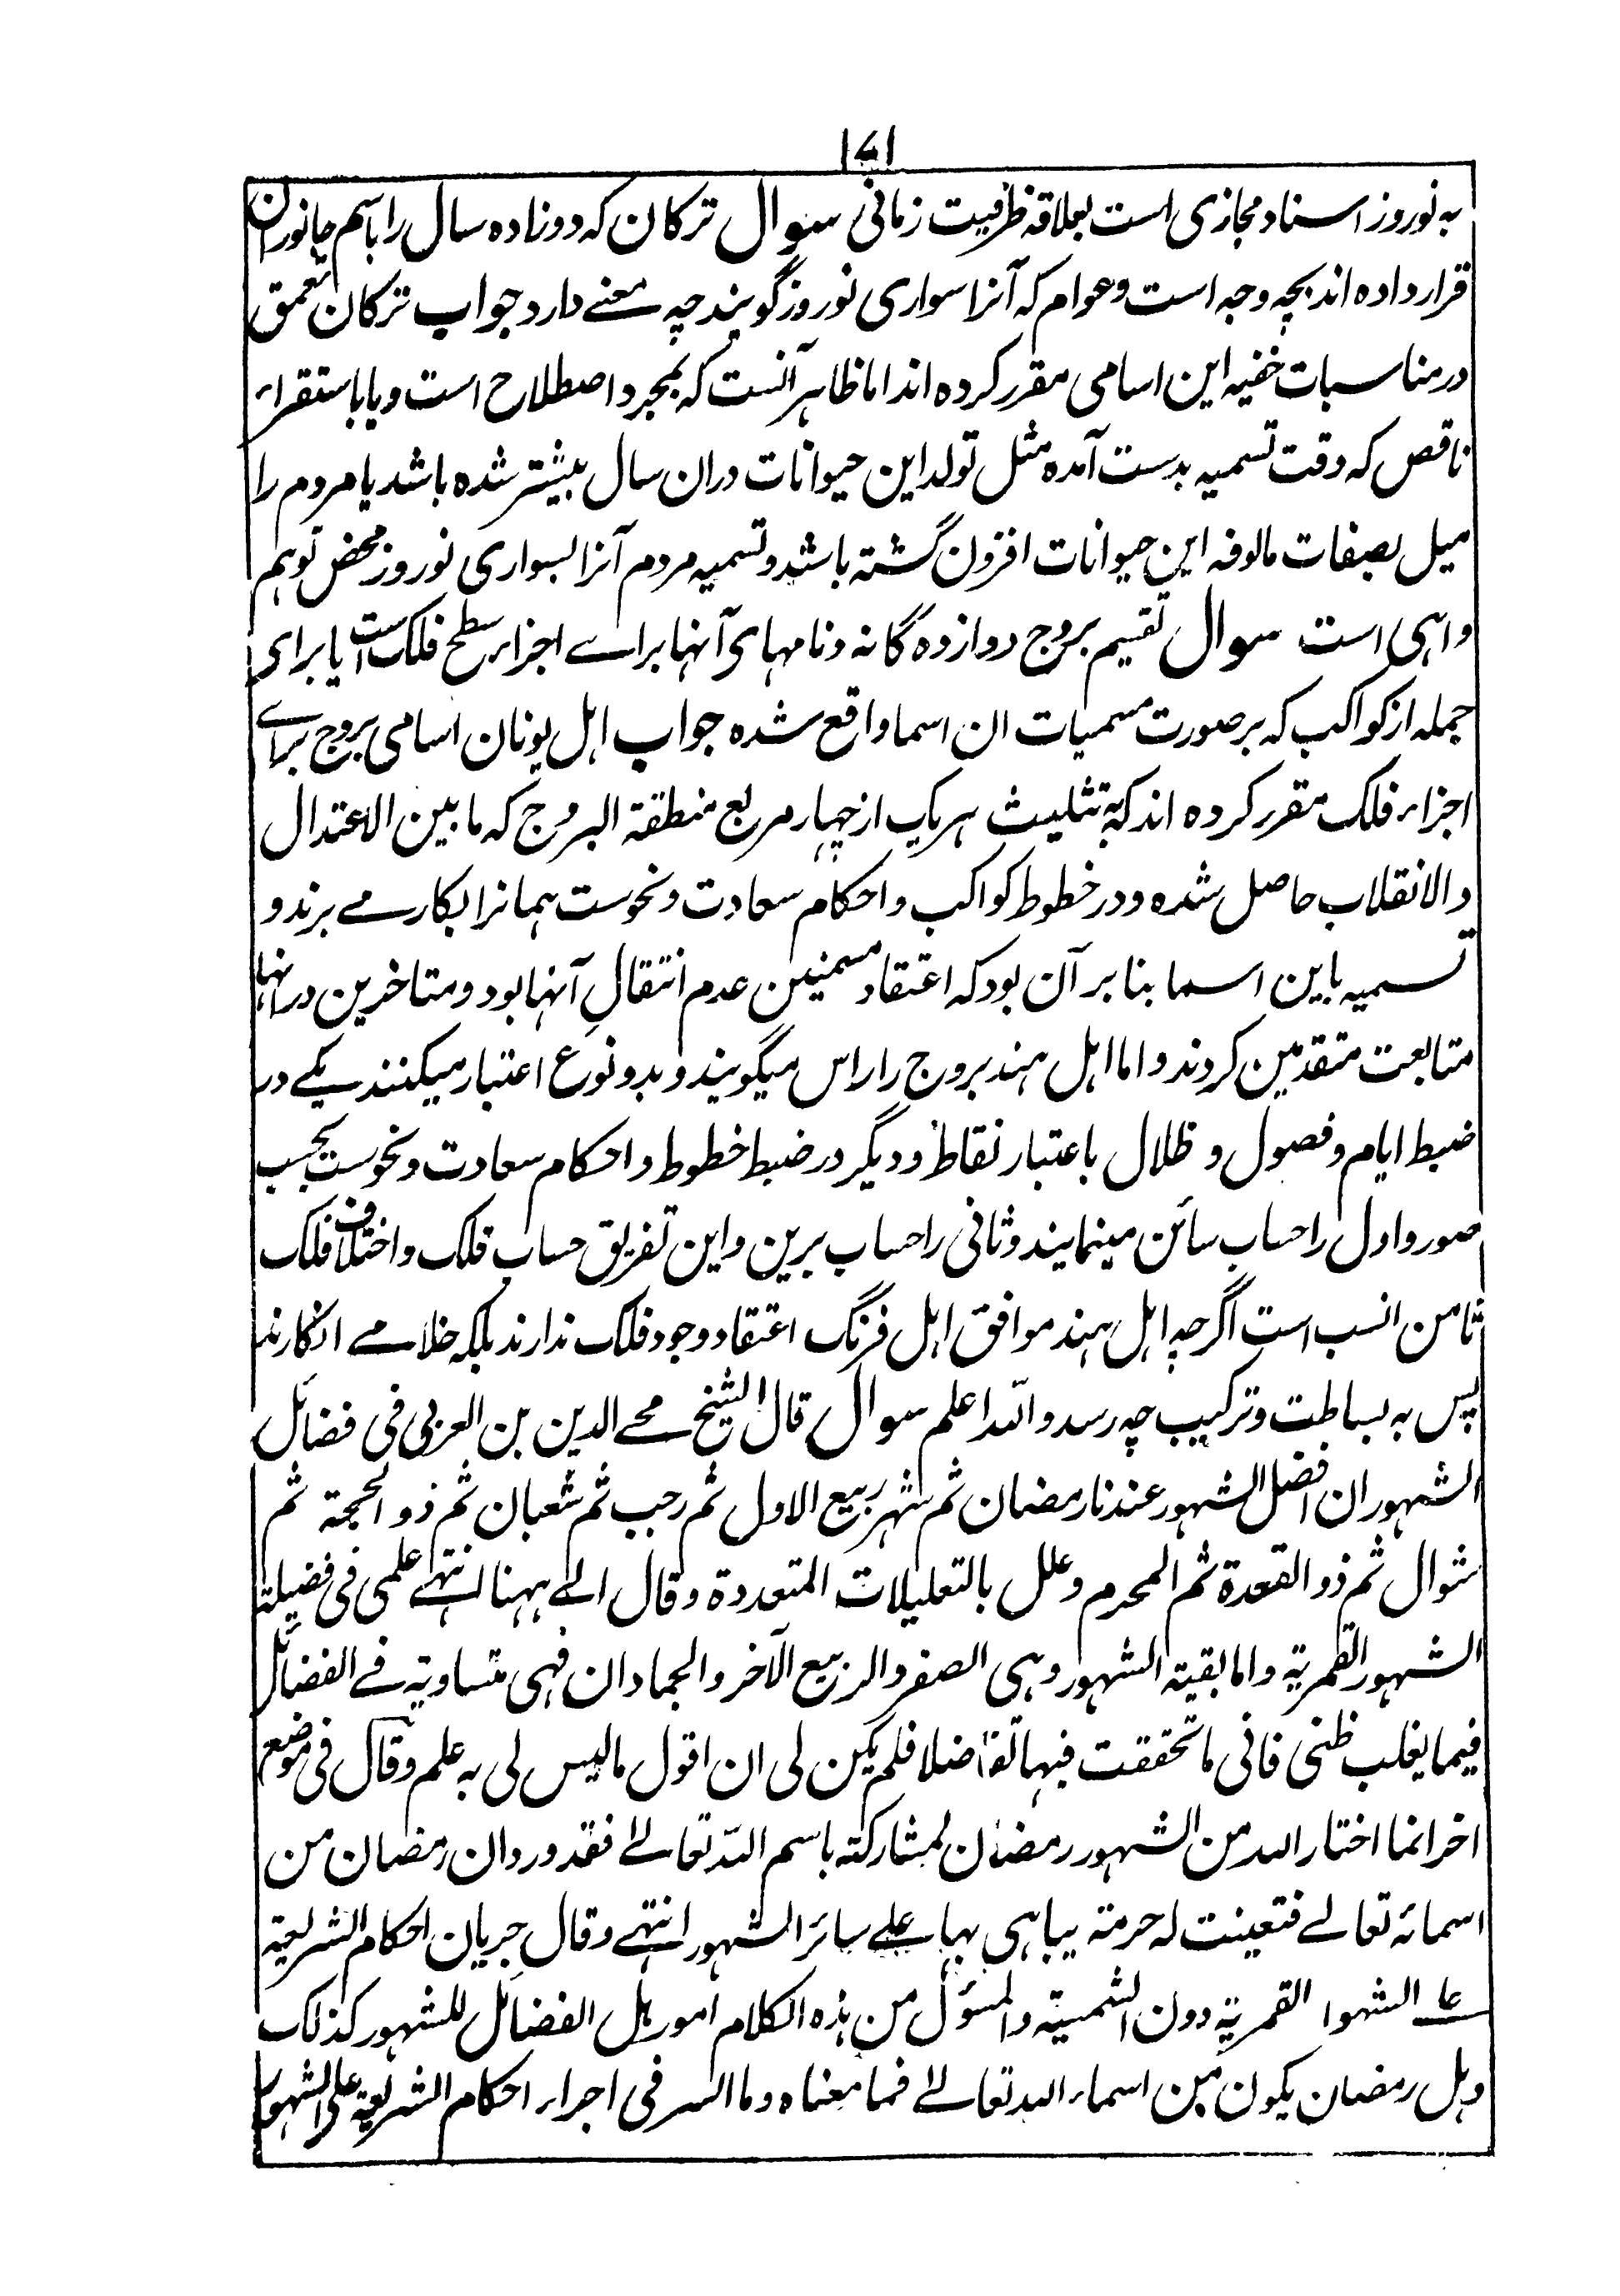 ۱۷۱
به نوروز اسناد مجازی است بعلاقه ظرفیت زمانی سوال ترکان که دوزاده سال را باسم جانوران
قرار داده اند بچه وجه است و عوام که آنرا سواری نوروز گویند چه معنے دارد جواب ترکان تعمق
در مناسبات خفیه این اسامی مقرر کرده اند اما ظاهر آنست که بمجرد اصطلاح است و یا باستقراء
ناقص که وقت تسمیه بدست آمده مثل تولد این حیوانات دران سال بیشتر شده باشد یا مردم را
میل بصفات مالوفه این حیوانات افزون گشته باشد و تسمیه مردم آنرا بسواری نوروز محض توهم
واهی است سوال تقسیم بروج دوازده گانه و نامهای آنها براے اجزاء سطح فلک است یا برای
جمله از کواکب که بر صورت مسمیات ان اسما واقع شده جواب اهل یونان اسامی بروج براے
اجزاء فلک مقرر کرده اند که به تثلیث هر یک از چهار مربع منطقة البروج که ما بین الاعتدال
والانقلاب حاصل شده و در خطوط کواکب و احکام سعادت و نحوست همانرا بکار مے برند و
تسمیه باین اسما بنا بر آن بود که اعتقاد مسمئین عدم انتقالِ آنها بود و متاخرین در انها
متابعت متقدمین کردند و اما اهل هند بروج را راس میگویند و بدو نوع اعتبار میکنند یکے در
ضبط ایام و فصول و ظلال باعتبار نقاط و دیگر در ضبط خطوط و احکام سعادت و نحوست بحسب
صور و اول را حساب سائن مینمایند و ثانی را حساب برین و این تفریق حساب فلک و اختلاف فلک
ثامن انسب است اگرچه اهل هند موافق اهل فرنگ اعتقاد وجود فلک ندارند بلکه خلا مے انگارند
پس به بساطت و ترکیب چه رسد و الله اعلم سوال قال الشیخ محے الدین بن العربی فی فضائل
الشهور ان افضل الشهور عندنا رمضان ثم شهر ربیع الاول ثم رجب ثم شعبان ثم ذو الحجة ثم
شوال ثم ذو القعدة ثم المحرم و علل بالتعلیلات المتعددة و قال الے ههنا انتهے علمی فی فضیلة
الشهور القمریة و اما بقیة الشهور و هی الصفر و الربیع الآخر و الجمادان فهی متساویة فے الفضائل
فیما یغلب ظنی فانی ما تحققت فیها تفاضلا فلم یکن لی ان اقول ما لیس لی به علم و قال فی موضع
اخر انما اختار الله من الشهور رمضان لمشارکته باسم الله تعالے فقد ورد ان رمضان من
اسمائه تعالے فتعینت له حرمة یباهی بها علے سائر الشهور انتهے و قال جریان احکام الشریعة
علے الشهوا القمریة دون الشمسیة و المسؤل من هذه الکلام امور هل الفضائل للشهور کذلک
و هل رمضان یکون من اسماء الله تعالے فما معناه و ما السر فی اجراء احکام الشریعة علی الشهور